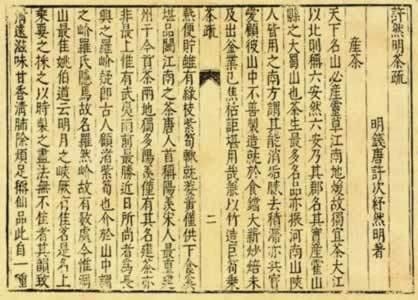 許然明茶疏
明錢唐許次紓然明著
產茶
天下名山必產靈草江南地煖故獨宜茶大江
以北則稱六安然六安乃其郡名其實產霍山
縣之大蜀山也茶生最多名品亦振河南山陝
人皆用之南方謂其能消垢膩去積滯亦共寶
愛顧彼山中不善製造就於食鐺大薪炒焙未
及出釜業已焦枯詎堪用哉兼以竹造巨笱乘
茶疏
二
熱便貯雖有綠枝紫筍輒就萎黃僅供下食奚
堪品鬬江南之茶唐人首稱陽羨宋人最重建
州于今貢茶兩地獨多陽羨僅有其名建茶亦
非最上惟有武夷雨前最勝近日所尚者爲長
興之羅岕疑即古人顧渚紫筍也介於山中謂
之岕羅氏隱焉故名羅然岕故有數處今惟洞
山最佳姚伯道云明月之峽厥有佳茗是名上
乘要之採之以時製之盡法無不佳者其韻致
清遠滋味甘香清肺除煩足稱仙品此自一種